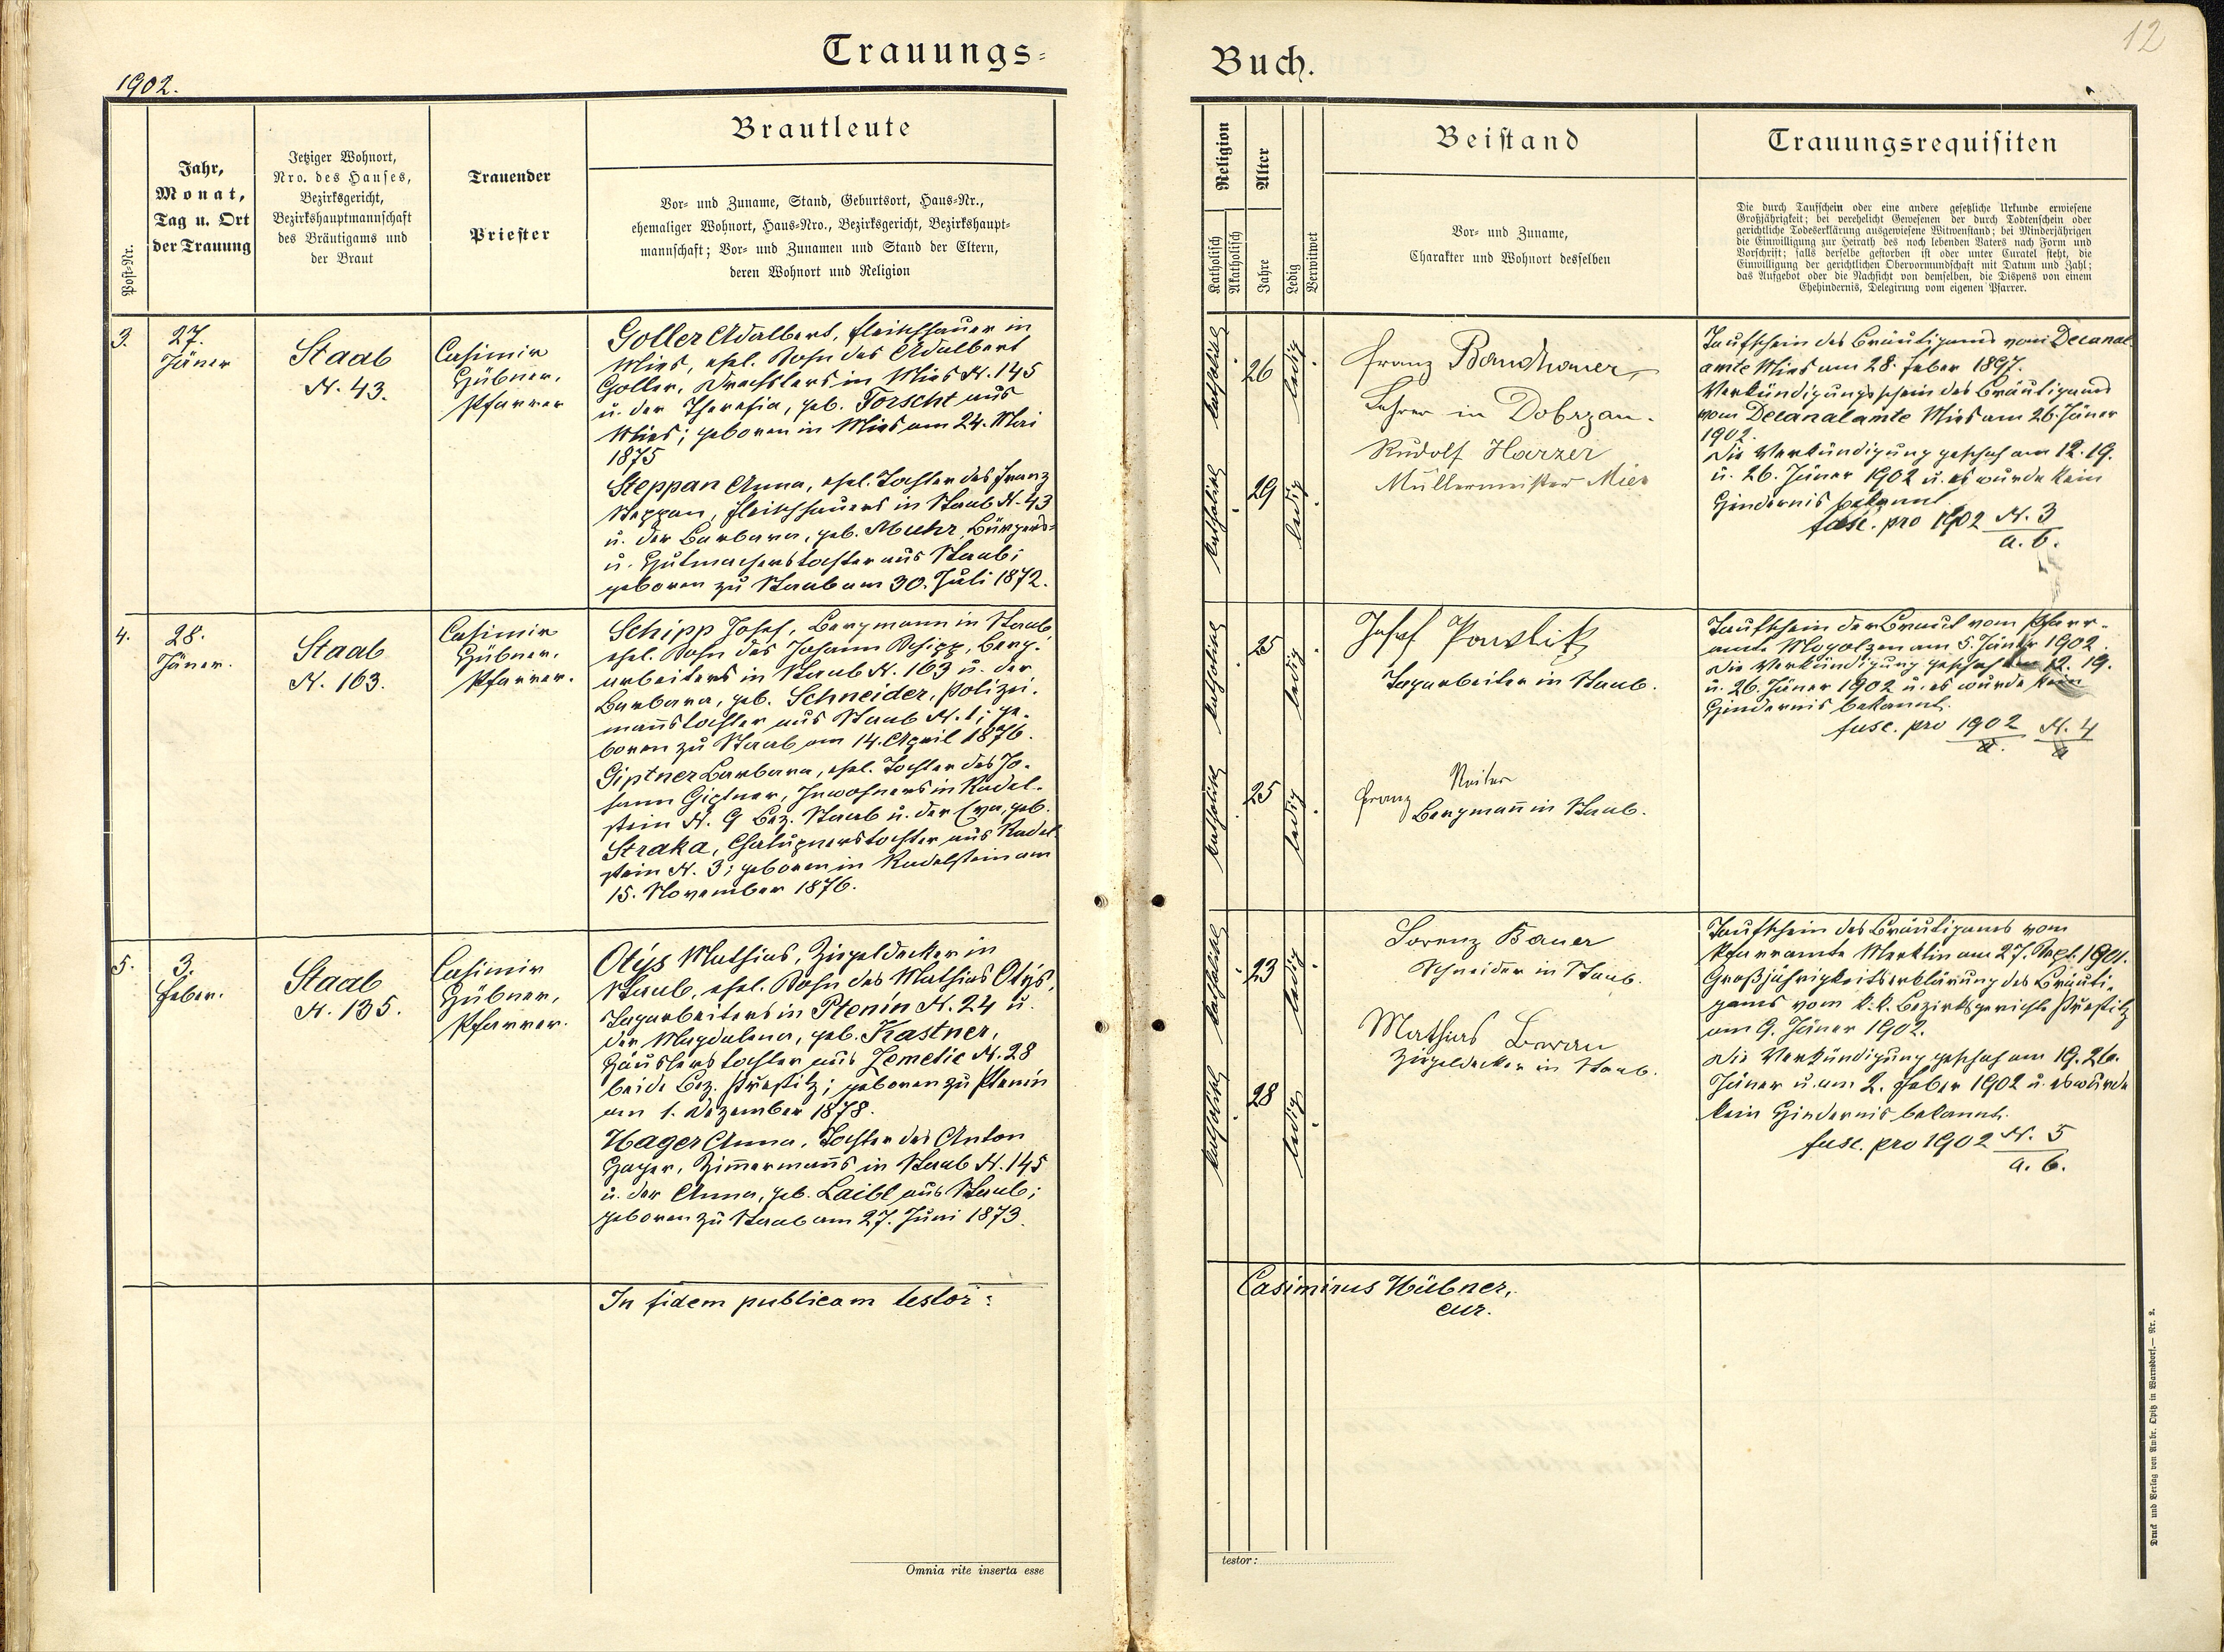 Trauungs=
1902.
Post=Nr.
Jahr,
Monat,
Tag u. Ort
der Trauung
Jetziger Wohnort,
Nro. des Hauses,
Bezirksgericht,
Bezirkshauptmannschaft
des Bräutigams und
der Braut
Trauender
Priester
Brautleute
Vor= und Zuname, Stand, Geburtsort, Haus=Nr.,
ehemaliger Wohnort, Haus=Nro., Bezirksgericht, Bezirkshaupt=
mannschaft; Vor= und Zunamen und Stand der Eltern,
deren Wohnort und Religion
3.
27.
Jäner
Staab
N. 43.
Casimir
Hübner,
Pfarrer
Goller Adalbert, Fleischhauer in
Mies, ehel. Sohn des Adalbert
Goller, Drechslers in Mies N. 145
u. der Theresia, geb. Forscht aus
Mies; geboren in Mies am 24. Mai
1875
Steppan Anna, ehel. Tochter des Franz
Steppan, Fleischhauers in Staab N. 43
u. der Barbara, geb. Muhr, Bürgers=
u. Hutmacherstochter aus Staab;
geboren zu Staab am 30. Juli 1872.
4.
28.
Jäner.
Staab
N. 163.
Casimir
Hübner,
Pfarrer.
Schipp Josef, Bergmann in Staab
ehel. Sohn des Johann Schipp, Berg-
arbeiters in Staab N. 163 u. der
Barbara, geb. Schneider, Polizei-
manns tochter aus Staab N. 1; ge-
boren zu Staab am 14. April 1876.
Giptner Barbara, ehel. Tochter des Jo-
hann Giptner, Inwohners in Radel-
stein N. 9 Bez. Staab u. der Eva, geb.
Straka, Chalupnerstochter aus Radel
stein N. 3; geboren in Radelstein am
15. November 1876.
5.
3.
Feber.
Staab
N. 135.
Casimir
Hübner,
Pfarrer.
Otýs Mathias, Ziegeldecker in
Staab, ehel. Sohn des Mathias Otýs,
Tagarbeiters in Ptenín N. 24 u.
der Magdalena, geb. Kastner,
Häuslerstochter aus Zemetic N. 28
beide Bez. Přestitz; geboren zu Ptenín
am 1. Dezember 1878.
Hager Anna, Tochter des Anton
Hager, Zimmermanns in Staab N. 145
u. der Anna, geb. Laibl aus Staab;
geboren zu Staab am 27. Juni 1873.
In fidem publicam testor:
Omnia rite inserta esse
12
Buch.
Religion
Katholisch
Akatholisch
Alter
Jahre
Ledig
Verwitwet
Beistand
Vor= und Zuname,
Charakter und Wohnort desselben
Trauungsrequisiten
Die durch Taufschein oder eine andere gesetzliche Urkunde erwiesene
Großjährigkeit; bei verehelicht Gewesenen der durch Todtenschein oder
gerichtliche Todeserklärung ausgewiesene Witwenstand; bei Minderjährigen
die Einwilligung zur Heirath des noch lebenden Vaters nach Form und
Vorschrift; falls derselbe gestorben ist oder unter Curatel steht, die
Einwilligung der gerichtlichen Obervormundschaft mit Datum und Zahl;
das Aufgebot oder die Nachsicht von demselben, die Dispens von einem
Ehehindernis, Delegirung vom eigenen Pfarrer.
katholisch
26
ledig
katholisch
29
ledig
Franz Bandhauer,
Lehrer in Dobrzan.
Rudolf Harzer
Müllermeister Mies
Taufschein des Bräutigams vom Decanal
amte Mies am 28. Feber 1897.
Verkündigungsschein des Bräutigams
vom Decanalamte Mies am 26. Jäner
1902.
Die Verkündigung geschah am 12. 19.
u. 26. Jäner 1902 u. es wurde kein
Hindernis bekannt.
fasc. pro 1902 N. 3
a. b.
katholisch
25
ledig
katholisch
25
ledig
Josef Pawlik
Tagarbeiter in Staab.
Franz Reiter
Bergmann in Staab.
Taufschein der Braut vom Pfarr-
amte Mogolzen am 5. Jäner 1902.
Die Verkündigung geschah am 12. 19.
u. 26. Jäner 1902 u. es wurde kein
Hindernis bekannt.
fasc. pro 1902 N. 4
a
katholisch
23
ledig
katholisch
28
ledig
Lorenz Bauer
Schneider in Staab.
Mathias Beran
Ziegeldecker in Staab.
Taufschein des Bräutigams vom
Pfarramte Merklin am 27. Sept. 1901.
Großjährigkeitserklärung des Bräuti-
gams vom k. k. Bezirksgerichte Přestitz
am 9. Jäner 1902.
Die Verkündigung geschah am 19. 26.
Jäner u. am 2. Feber 1902 u. es wurde
kein Hindernis bekannt.
fasc. pro 1902 N. 5
a. b.
Casimirus Hübner,
cur.
testor:
Druck und Verlag von Ambr. Opitz in Warnsdorf.— Nr. 2.